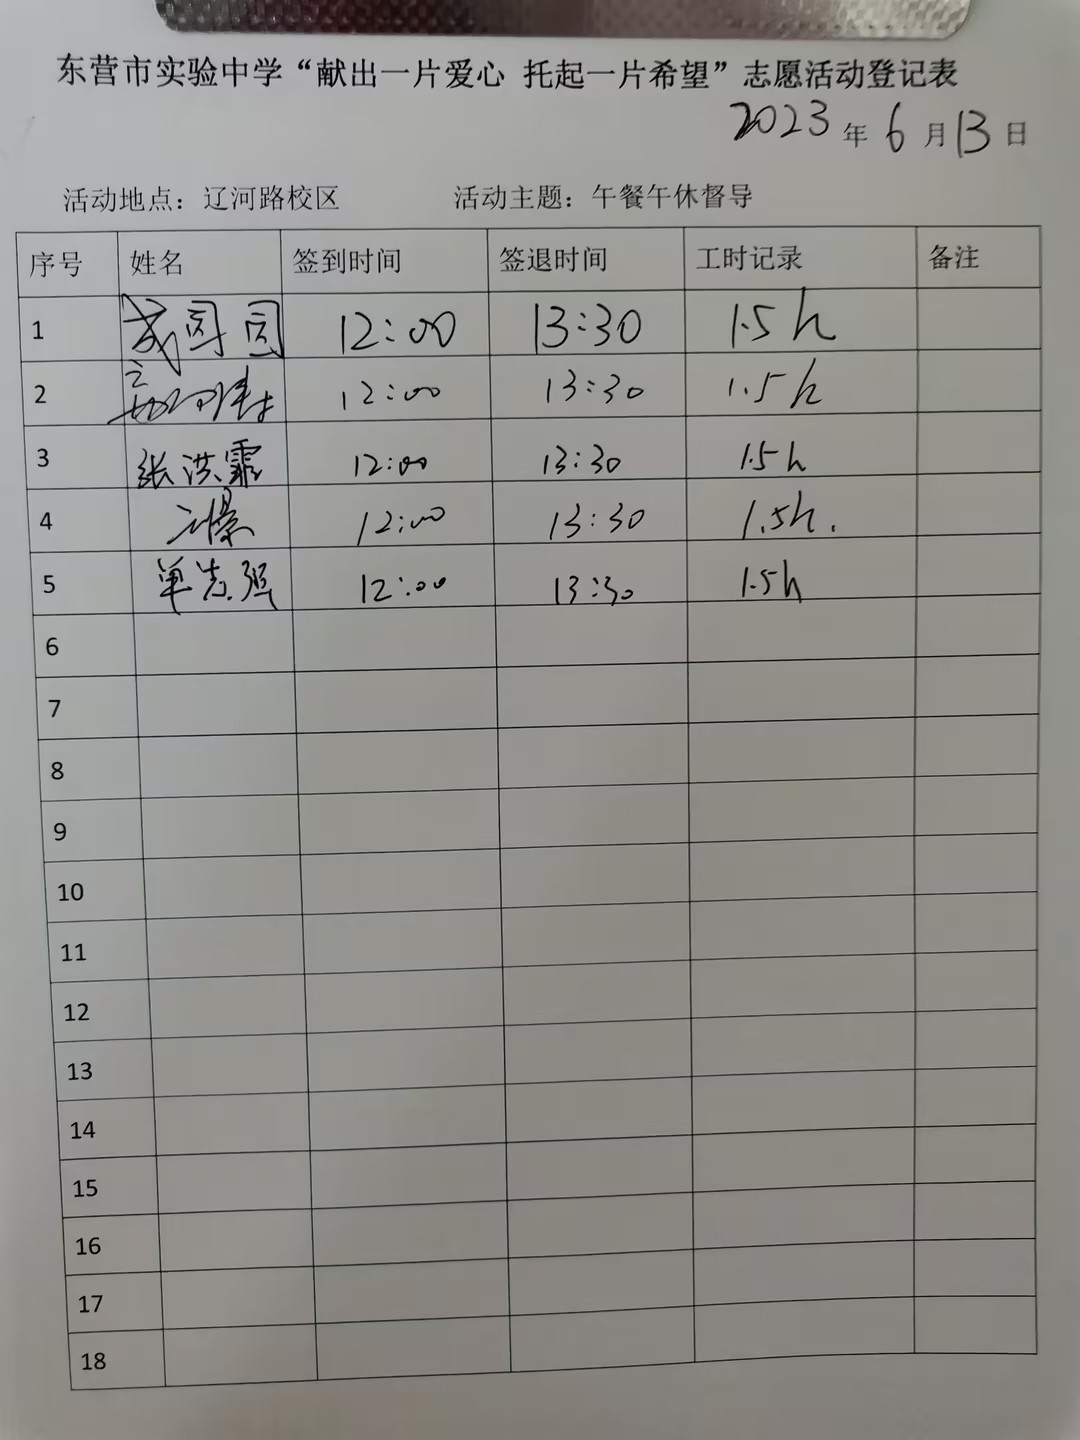 东营市实验中学“献出一片爱心 托起一片希望”志愿活动登记表
2023 年 6 月 13 日
活动地点：辽河路校区 活动主题：午餐午休督导
序号 姓名 签到时间 签退时间 工时记录 备注
1 12:00 13:30 1.5h
2 12:00 13:30 1.5h
3 张洪霏 12:00 13:30 1.5h
4 12:00 13:30 1.5h.
5 单志强 12:00 13:30 1.5h
6
7
8
9
10
11
12
13
14
15
16
17
18